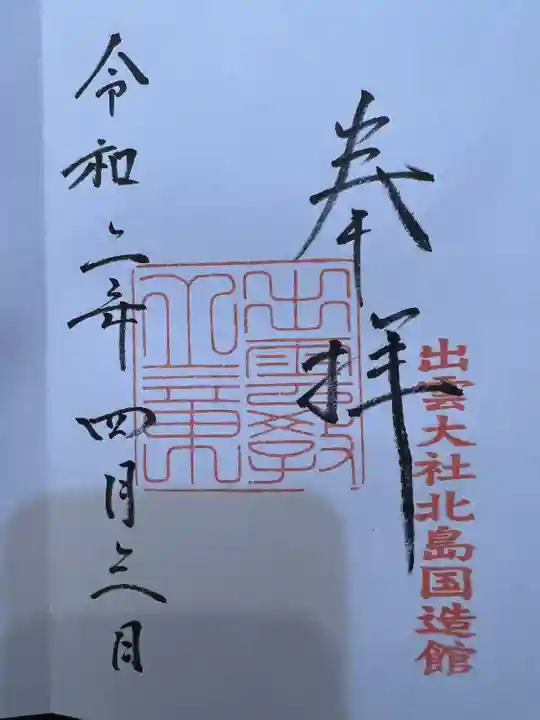 出雲大社北島国造館
奉拝
出雲教
令和六年四月六日